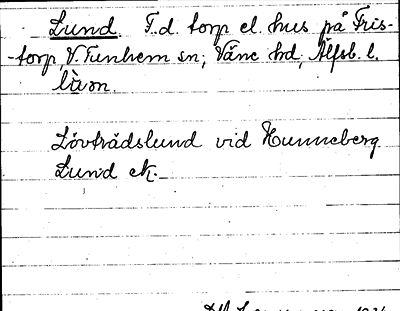 Lund. F.d. torp el. hus på Fris-
-torp, V. Tunhem sn; Väne hd; Älfsb. l.
lùn.
Lövträdslund vid Hunneberg.
Lund ek.